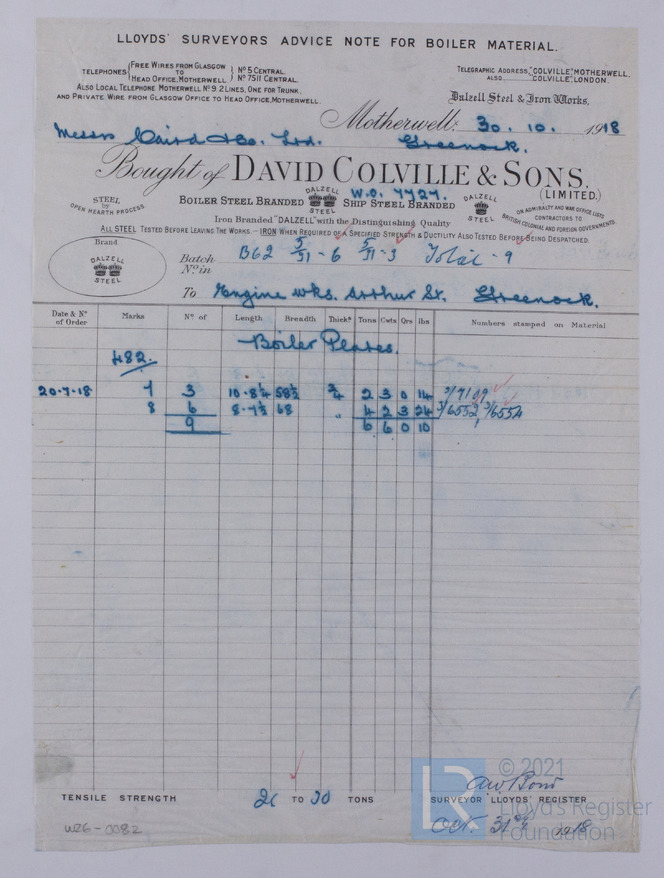 LLOYDS' SURVEYORS ADVICE NOTE FOR BOILER MATERIAL.
TELEPHONES { FREE WIRES FROM GLASGOW TO HEAD OFFICE, MOTHERWELL } Nº 5 CENTRAL. Nº 7511 CENTRAL.
ALSO LOCAL TELEPHONE MOTHERWELL Nº 9. 2 LINES, ONE FOR TRUNK,
AND PRIVATE WIRE FROM GLASGOW OFFICE TO HEAD OFFICE, MOTHERWELL.
TELEGRAPHIC ADDRESS, "COLVILLE", MOTHERWELL.
ALSO "COLVILLE", LONDON.
Dalzell Steel & Iron Works,
Motherwell: 30. 10. 1918
Messrs Caird & Co. Ltd. Greenock.
Bought of DAVID COLVILLE & SONS. (LIMITED.)
W.O. 7727.
STEEL by OPEN HEARTH PROCESS
BOILER STEEL BRANDED DALZELL STEEL SHIP STEEL BRANDED DALZELL STEEL
ON ADMIRALTY AND WAR OFFICE LISTS
CONTRACTORS TO
BRITISH COLONIAL AND FOREIGN GOVERNMENTS
Iron Branded "DALZELL" with the Distinguishing Quality
ALL STEEL TESTED BEFORE LEAVING THE WORKS.—IRON WHEN REQUIRED OF A SPECIFIED STRENGTH & DUCTILITY ALSO TESTED BEFORE BEING DESPATCHED.
Brand
DALZELL STEEL
Batch Nº in B62 5/31 - 6 5/31 - 3 Total - 9
To Engine Wks. Arthur St. Greenock.
Date & Nº of Order Marks Nº of Length Breadth Thickˢ Tons Cwts Qrs lbs Numbers stamped on Material
Boiler Plates.
482.
20-7-18 7 3 10-8¼ 58½ ¾ 2 3 0 14 3/7109
8 6 8-7½ 68 " 4 2 3 24 3/6552, 3/6554
9 6 6 0 10
TENSILE STRENGTH 26 TO 30 TONS
A W Bond
SURVEYOR LLOYDS' REGISTER
Oct. 31st 1918
W26-0082
LR
© 2021
Lloyd's Register
Foundation